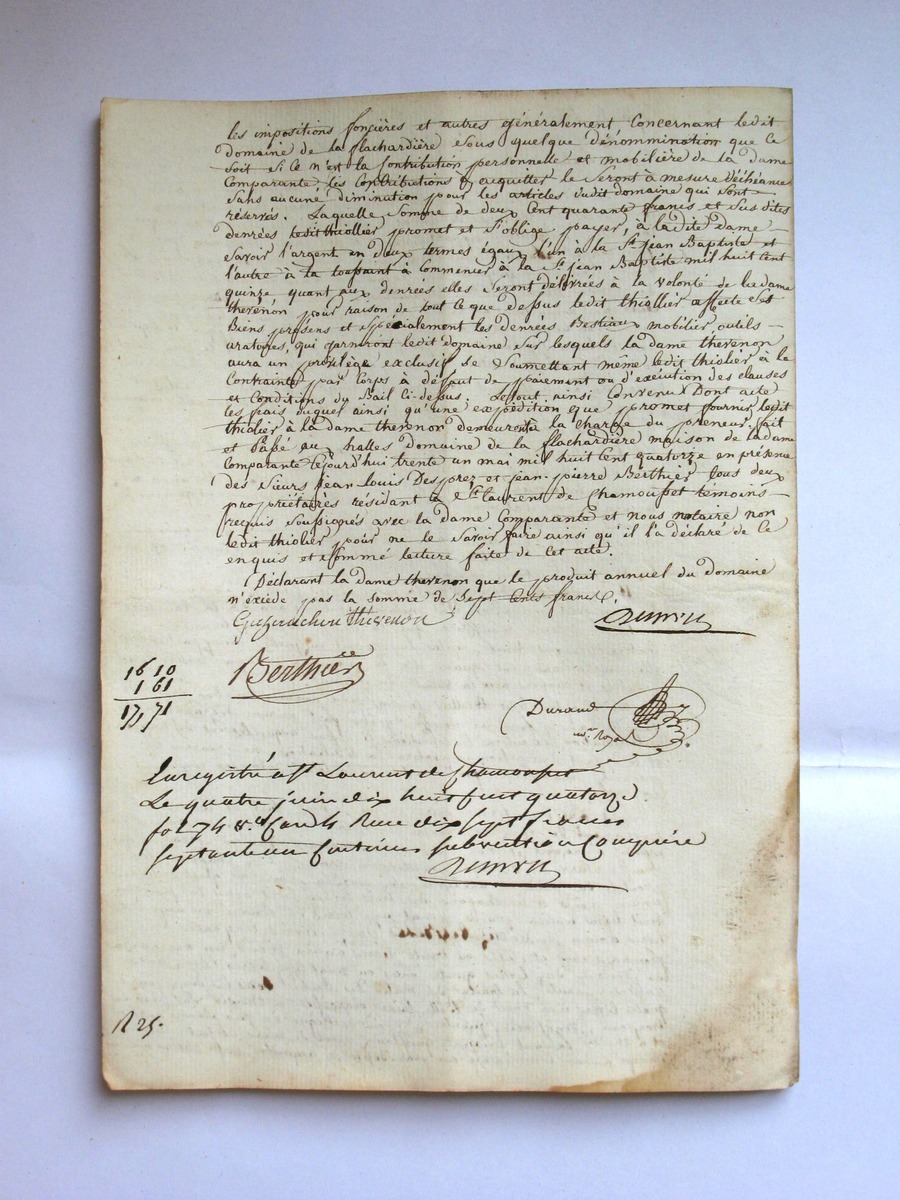 les impositions foncières et autres généralement Concernant ledit
domaine de la flachardière sous quelque dénommination que ce
soit Si Ce n'est la Contribution personnelle et mobilière de la dame
Comparante, les Contributions à acquitter le seront à mesure d'échéance
Sans aucune diminution pour les articles dudit domaine qui sont
réservés. Laquelle Somme de deux Cent quarante francs et Susdites
denrées ledit thiollier promet et S'oblige payer, à ladite dame
Savoir l'argent en deux termes égaux l'un à la St. jean Baptiste et
l'autre à la toussaint à Commencer à la St. jean Baptiste mil huit Cent
quinze quant aux denrées elles Seront délivrées à la volonté de ladame
thevenon pour raison de tout Ce que dessus ledit thiollier affecte Ses
Biens présens et spécialement les denrées Bestiaux mobilier, outils
aratoires, qui garniront ledit domaine sur lesquels la dame thevenon
aura un privilège exclusif se Soumettant même ledit thiolier à la
Contrainte par Corps à défaut de paiement ou d'exécution des clauses
et Conditions du Bail Ci-dessus. Le tout ainsi Convenu Dont acte
les frais duquel ainsi qu'une expédition que promet fournir ledit
thiolier à la dame thevenon demeurent à la Charge du preneur. fait
et Passé aux halles Domaine de la flachardière maison de la dame
Comparante Cejourd'hui trente un mai mil huit Cent quatorze en présence
des Sieurs jean Louis Desprez et jean-pierre Berthier tous deux
propriétaires résidant à St. laurent de Chamousset temoins
requis Soussignés avec la dame Comparante et nous notaire non
ledit thiolier pour ne le Savoir faire ainsi qu'il l'a déclaré de Ce
enquis et Sommé lecture faite de Cet acte.
Déclarant la dame thevenon que le produit annuel du domaine
n'exiède pas la somme de Sept Cents francs.
Thevenon
Berthier
1610
161
17,71
Durand
Enregistré a St Laurent de Chamousset
Le quatre juin dix huit cent quatorze
fol 74 Case 4 Reçu dix sept francs
septante un Centimes subvention Comprise
R 25.